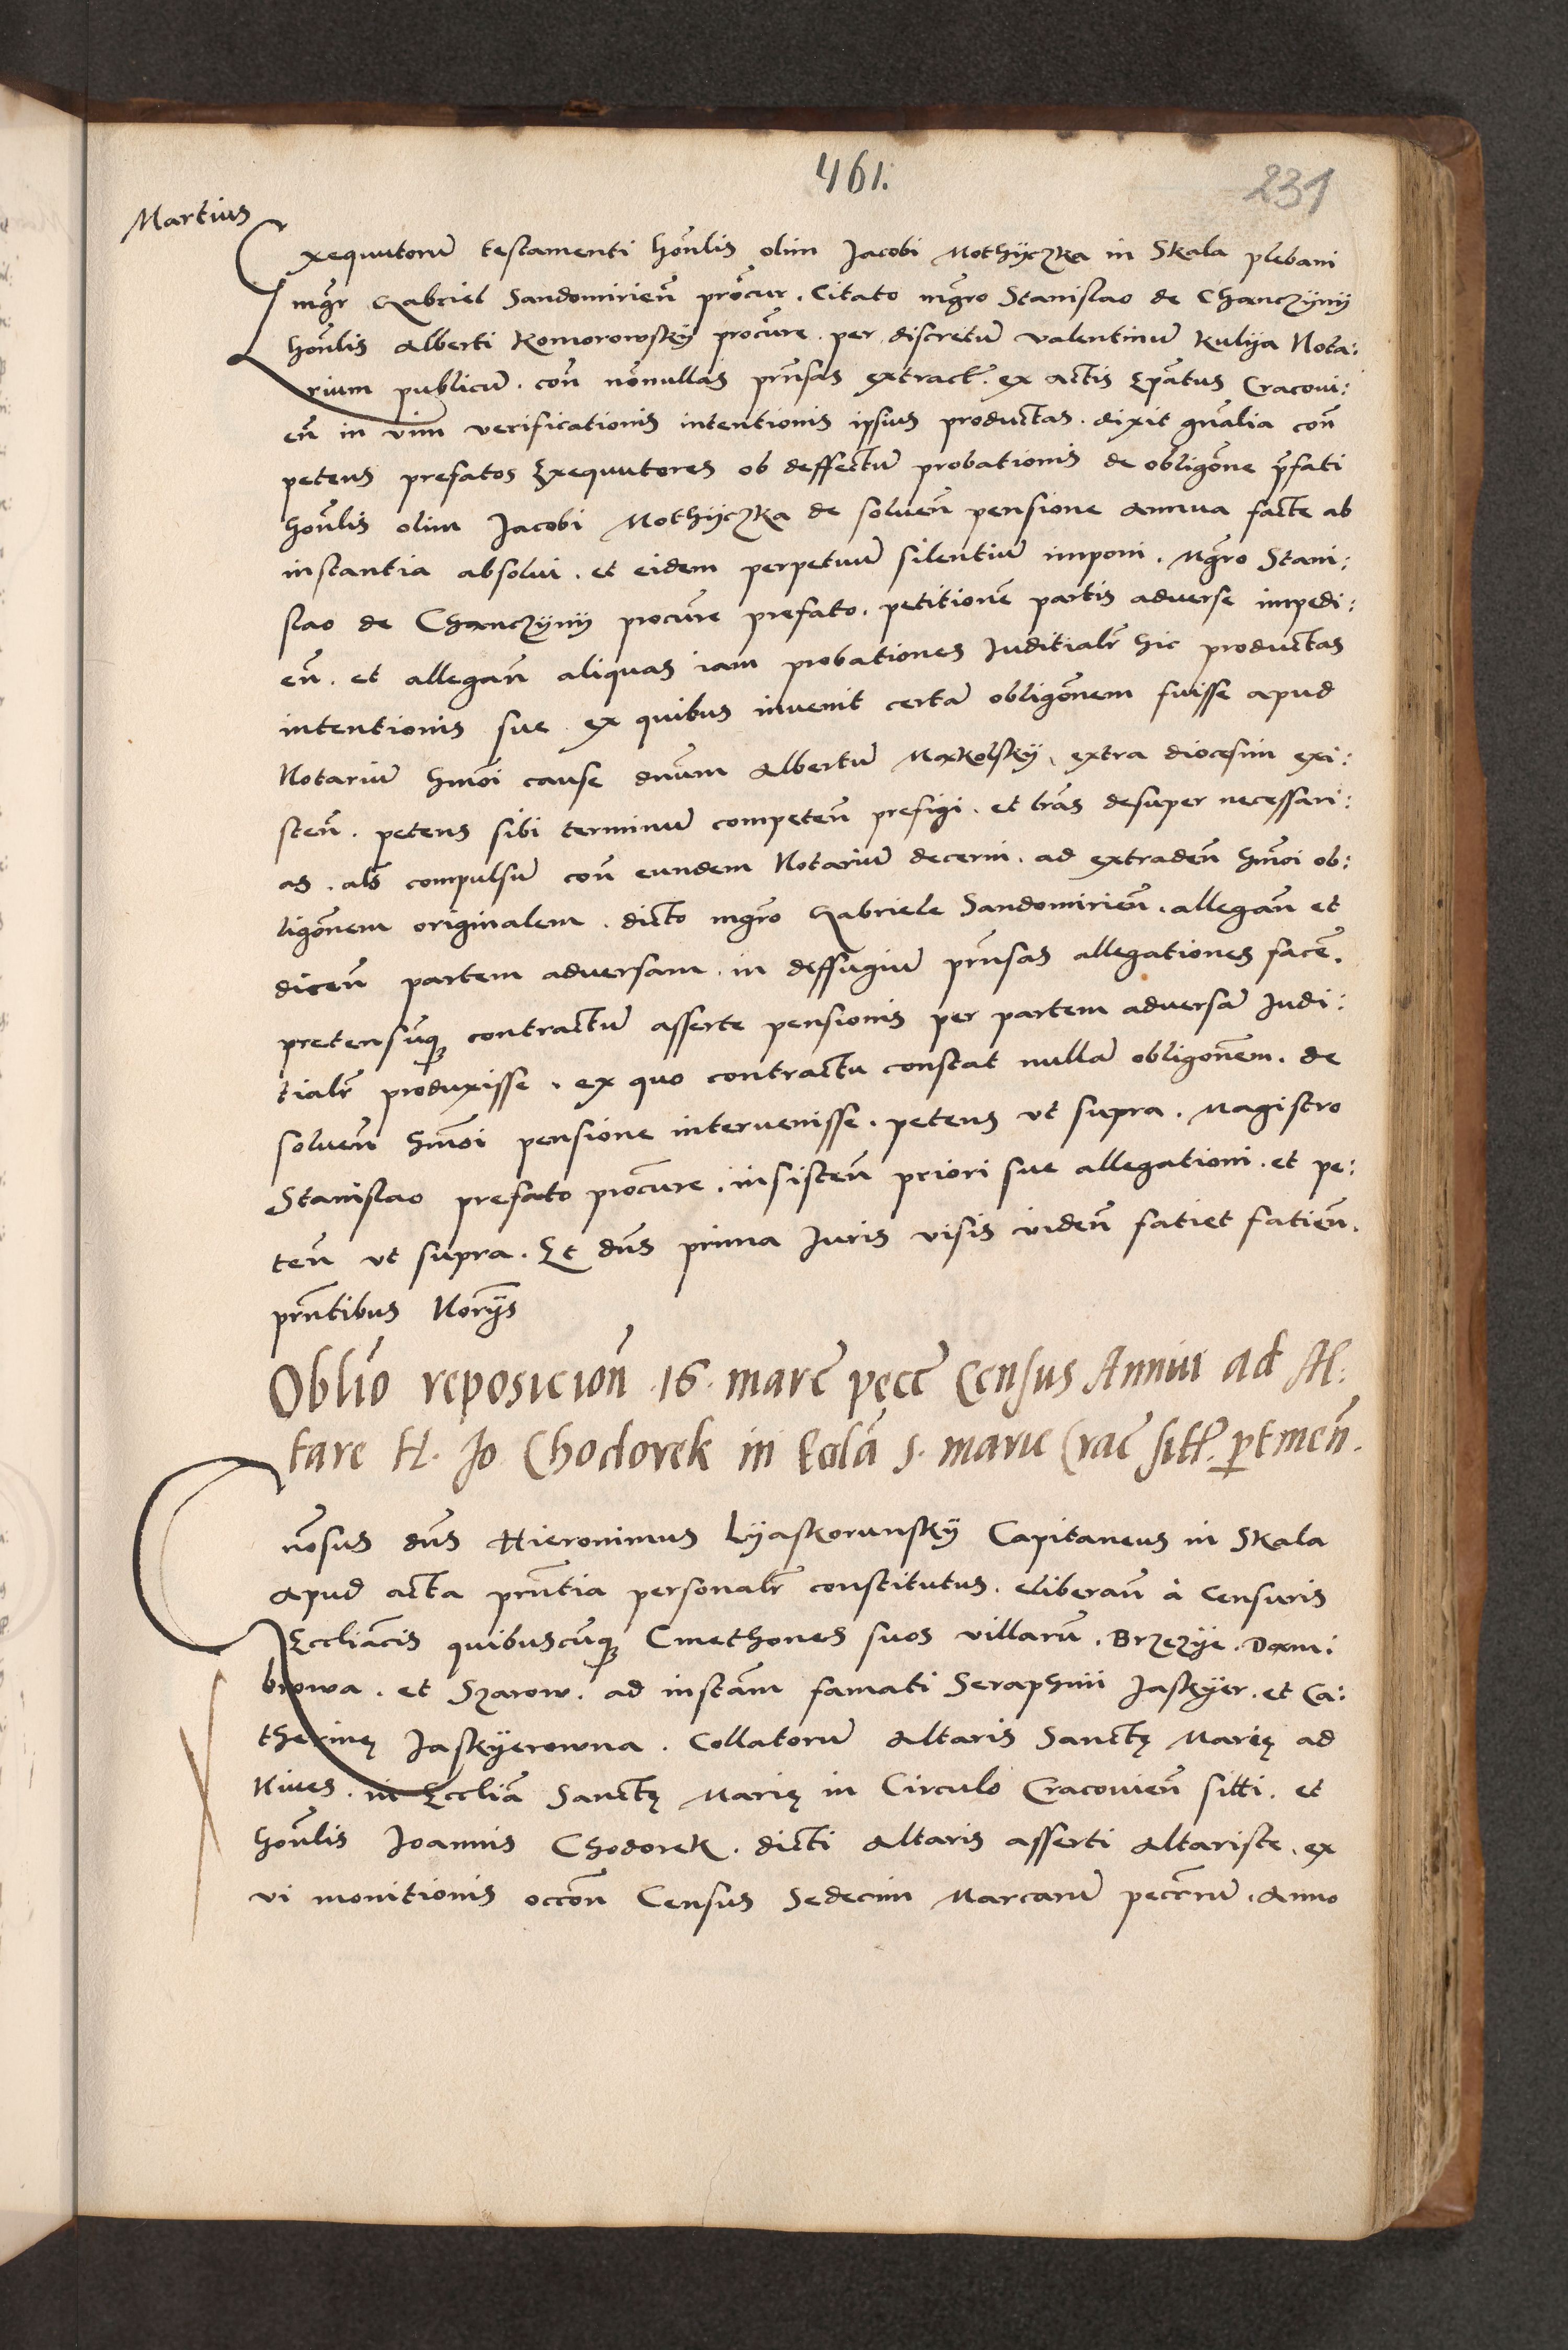 461.
231
Martius
Exequutorum̄ testamenti hon̄lis olim Jacobi Mothijczka in Skala plebani
mḡr Gabriel Sandomirien̄ procūr. Citato mḡro Stanislao de Chanczijnij
hon̄lis Alberti Komorowskij procūre. per discretum̄ valentinum̄ Kulija Nota:
rium publicum̄. con̄ nōnullas prn̄sas extract. ex actis Ep̄atus Cracoui:
en̄ in vim̄ verificationis intentionis ipsius productas. dixit gn̄alia con̄
petens prefatos Exequutores ob deffectum̄ probationis de obligōne p̄fati
hon̄lis olim Jacobi Mothijczka de soluen̄ pensione annua facte ab
instantia absolui. et eidem perpetuum̄ silentium̄ imponi. Mḡro Stani:
slao de Chanczijnij procūre prefato. petitionem̄ partis aduerse impedi:
en̄. et allegan̄ aliquas iam probationes Juditialr̄ hic productas
intentionis sue ex quibus inuenit certam̄ obligōnem fuisse apud
Notarium̄ hm̄oi cause dn̄um Albertum̄ Mokolskij. extra diocesim exi:
sten̄. petens sibi terminum̄ competen̄ prefigi. et lr̄as desuper necessari:
as. als̄ compulsum̄ con̄ eundem Notarium̄ decerni. ad extraden̄ hm̄oi ob:
ligōnem originalem. dicto mḡro Gabriele Sandomirien̄. allegan̄ et
dicen̄ partem aduersam. in deffugium̄ prn̄sas allegationes facen̄.
pretensumq̄ contractum̄ asserte pensionis per partem aduersam̄ Judi:
tialr̄ produxisse. ex quo contractu constat nullam̄ obligōnem. de
soluen̄ hm̄oi pensione interuenisse. petens vt supra. Magistro
Stanislao prefato procūre. insisten̄ priori sue allegationi. et pe:
ten̄ vt supra. Et dn̄s prima Juris visis viden̄ fatiet fatien̄.
prn̄tibus Nor̄ijs
Obliō reposicion̄ .16. marc̄ pecc̄ Census Annui ad Al:
tare H. Jo Chodorek in Eccl̄a S. marie Crac̄ sitt. p̱tinen̄.
Gn̄osus dn̄s Hieronimus Lijaskorunskij Capitaneus in Skala
apud acta prn̄tia personalr̄ constitutus. eliberan̄ à Censuris
Eccliācis quibuscumq̄ Cmethones suos villarum̄. Brzezije. Dam:
browa. et Szarow. ad instam̄ famati Seraphini Jaskijer. et Ca:
therinę Jaskijerowna. Collatorum̄ Altaris Sanctę Marię ad
Niues. in Eccliā Sanctę Marię in Circulo Cracouien̄ sitti. et
hon̄lis Joannis Chodorek. dicti Altaris asserti Altariste. ex
vi monitionis occōn Census Sedecim Marcarum̄ peccn̄rum̄. Anno